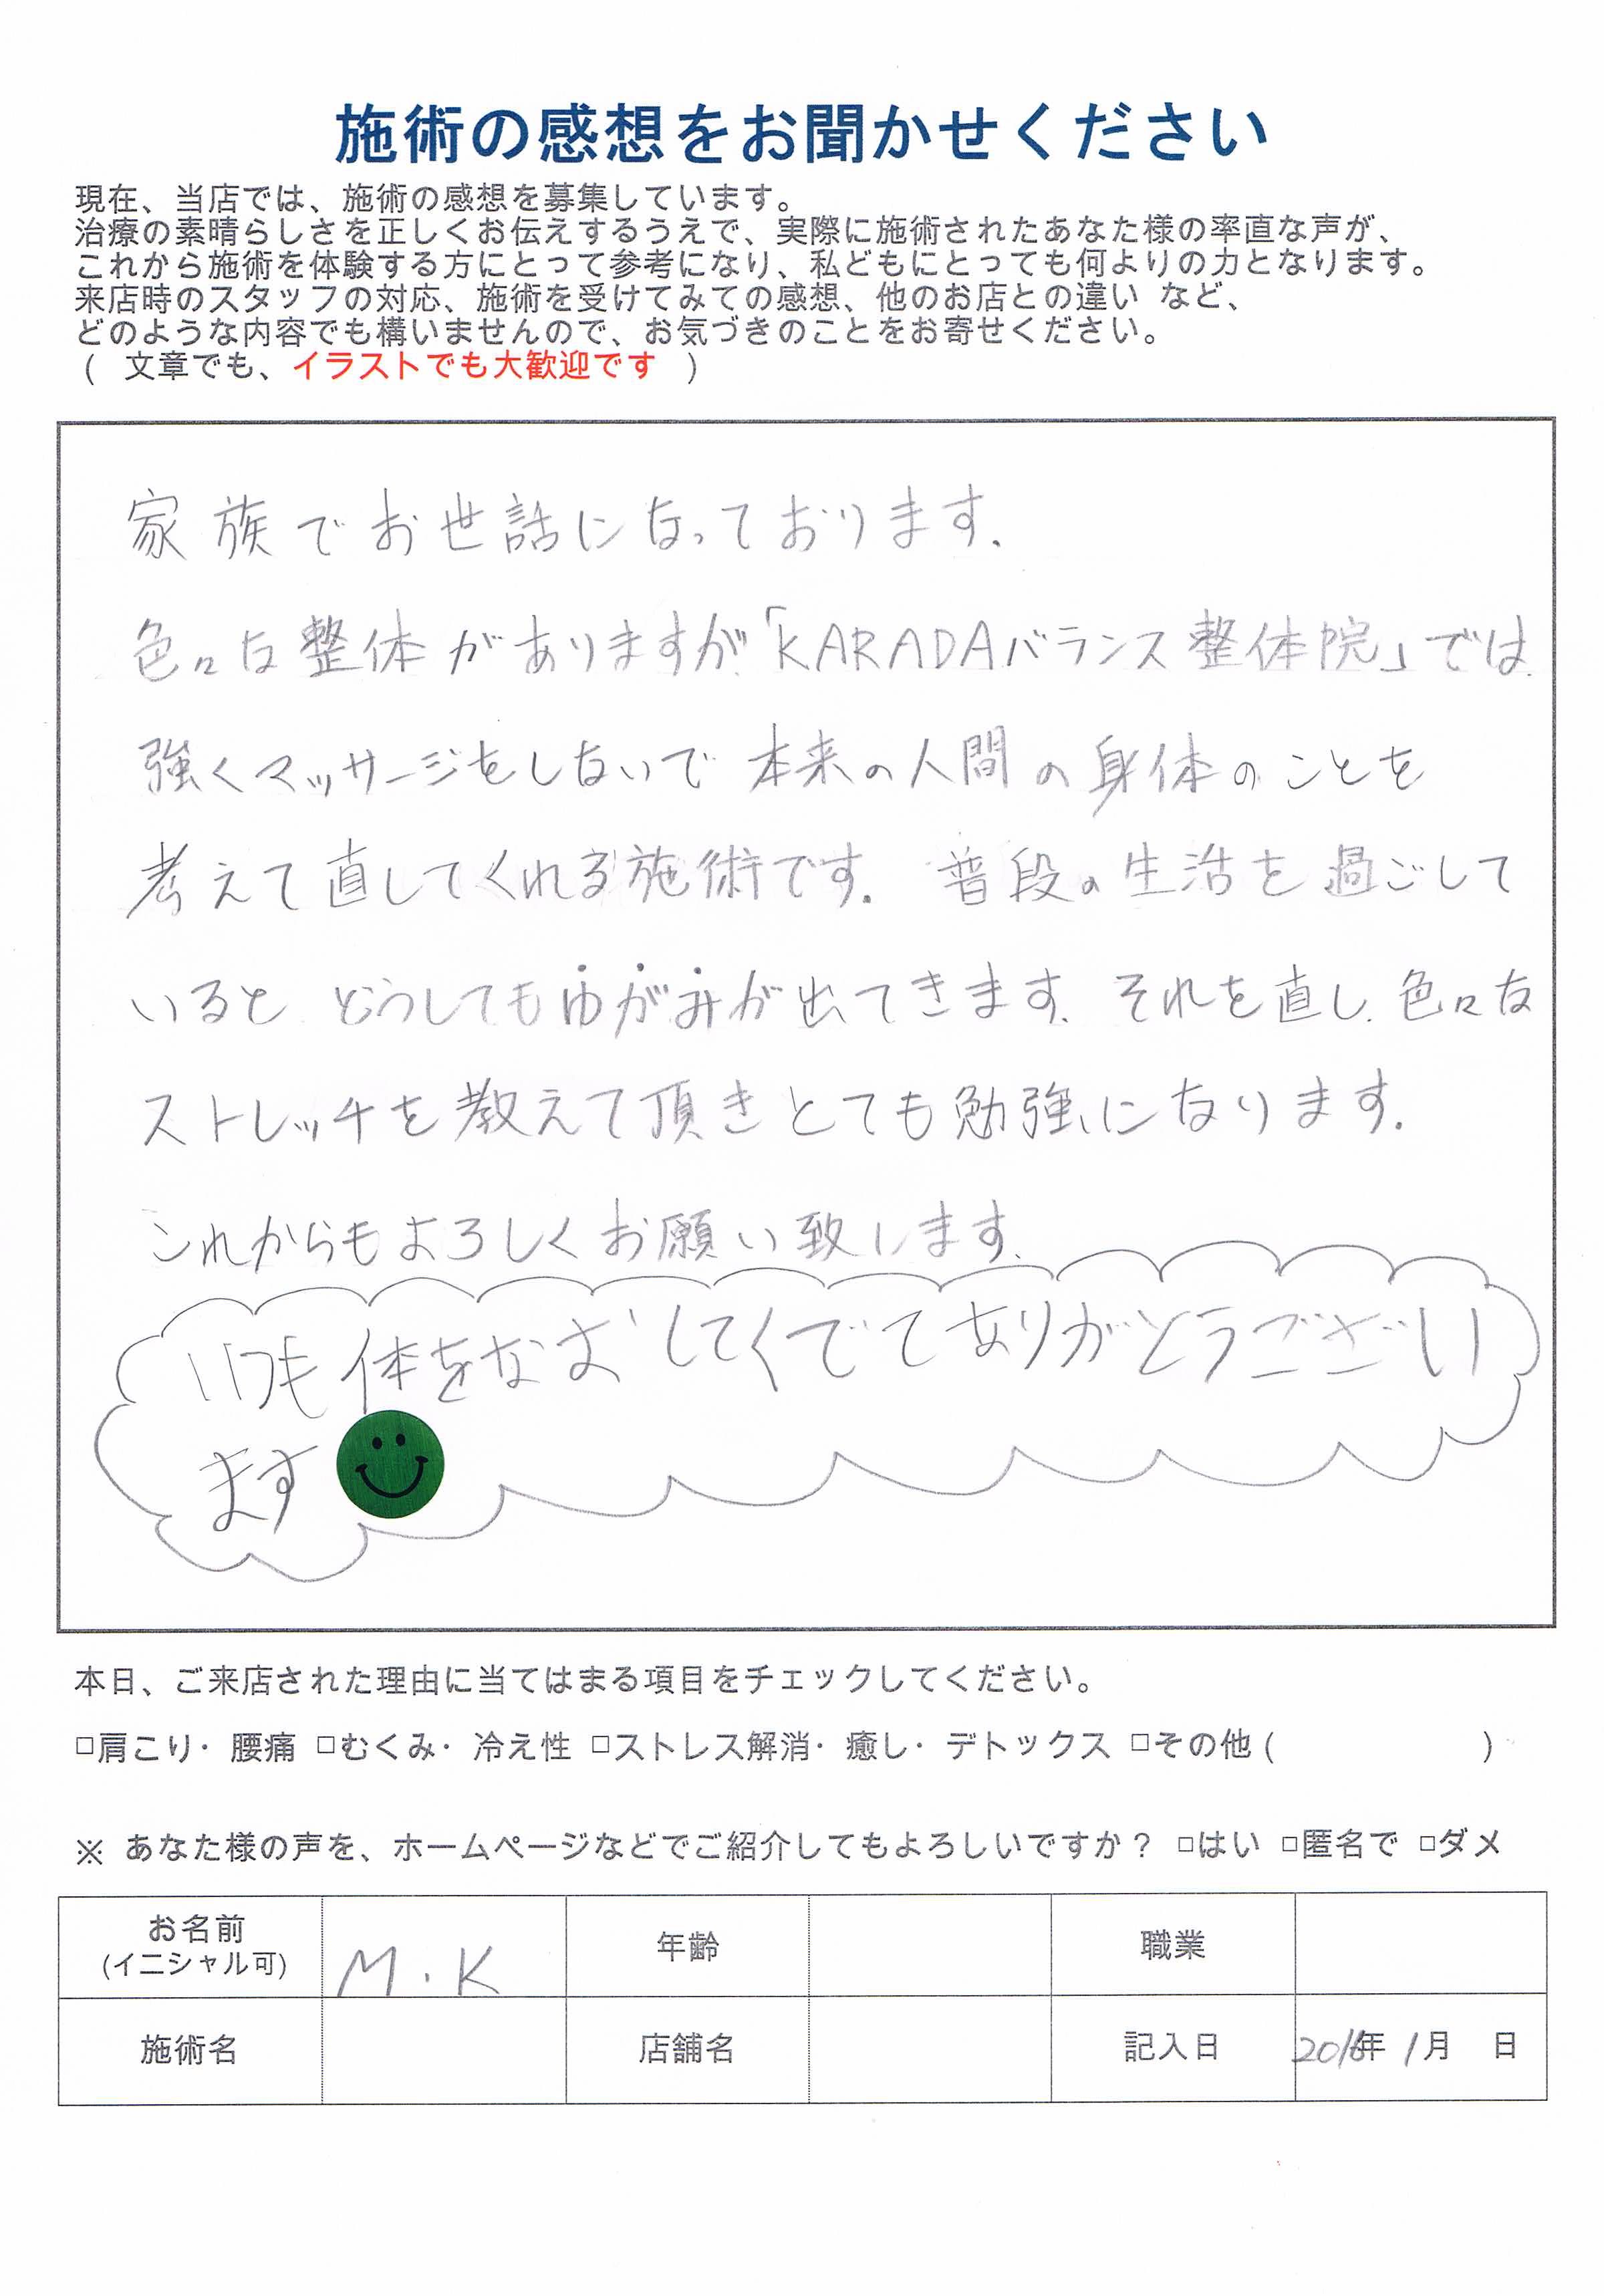 施術の感想をお聞かせください
現在、当店では、施術の感想を募集しています。
治療の素晴らしさを正しくお伝えするうえで、実際に施術されたあなた様の率直な声が、
これから施術を体験する方にとって参考になり、私どもにとっても何よりの力となります。
来店時のスタッフの対応、施術を受けてみての感想、他のお店との違い など、
どのような内容でも構いませんので、お気づきのことをお寄せください。
( 文章でも、イラストでも大歓迎です )
家族でお世話になっております.
色々な整体がありますが「KARADAバランス整体院」では.
強くマッサージをしないで本来の人間の身体のことを
考えて直してくれる施術です. 普段の生活を過ごして
いると どうしてもゆがみが出てきます. それを直し. 色々な
ストレッチを教えて頂きとても勉強になります.
これからもよろしくお願い致します.
いつも体をなおしてくでてありがとうござい
ます
本日、ご来店された理由に当てはまる項目をチェックしてください。
□肩こり・腰痛 □むくみ・冷え性 □ストレス解消・癒し・デトックス □その他 ( )
※ あなた様の声を、ホームページなどでご紹介してもよろしいですか？ □はい □匿名で □ダメ
お名前 M.K 年齢 職業
(イニシャル可)
施術名 店舗名 記入日 2016年 1月 日